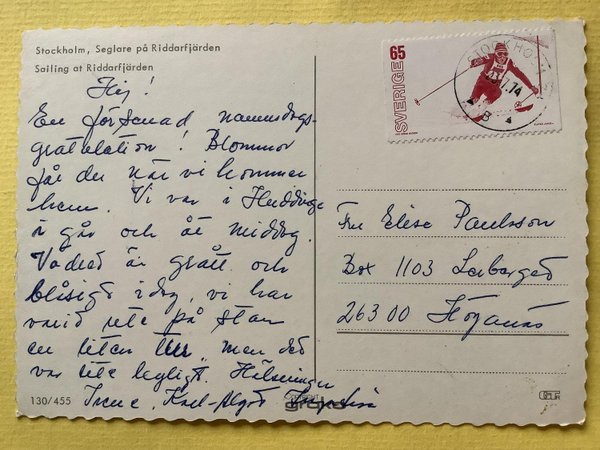 Stockholm, Seglare på Riddarfjärden
Sailing at Riddarfjärden
Hej!
En försenad namnsdags-
gratulation! Blommor
får du när vi kommer
hem. Vi var i Huddinge
i går och åt middag.
Vädret är grått och
blåsigt idag, vi har
varit ute på stan
en liten tur, men det
var lite kyligt. Hälsningar
Irene, Karl-Algot
130/455
SVERIGE 65
STOCKHOLM
.74
B
Fru Elise Paulsson
Box 1103 Lerberget
26300 Höganäs